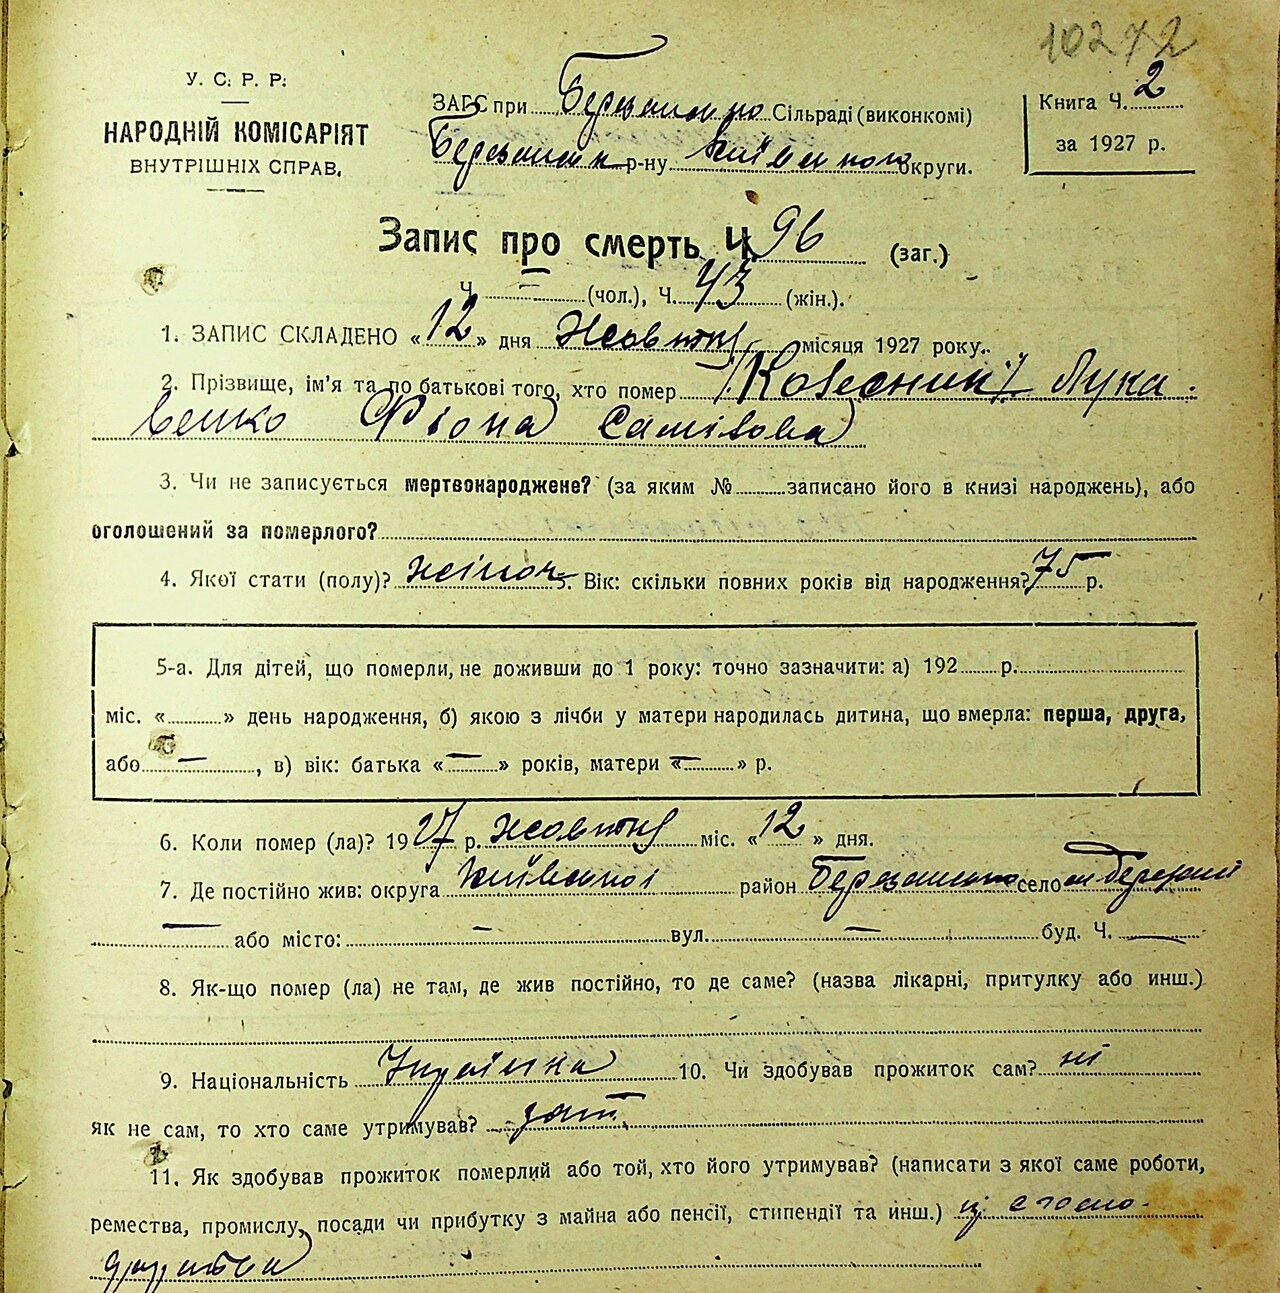 10272
У. С. Р. Р.
НАРОДНІЙ КОМІСАРІЯТ
ВНУТРІШНІХ СПРАВ.
ЗАГС при Березансько Сільраді (виконкомі)
Березанськ р-ну Київської округи.
Книга Ч. 2
за 1927 р.
Запис про смерть Ч. 96 (заг.)
Ч. — (чол.), Ч. 43 (жін.).
1. ЗАПИС СКЛАДЕНО «12» дня Жовтня місяця 1927 року.
2. Прізвище, ім'я та по батькові того, хто помер /Колесник/ Лука-
венко Фіона Самілова
3. Чи не записується мертвонароджене? (за яким № записано його в книзі народжень), або
оголошений за померлого?
4. Якої стати (полу)? жіноч. Вік: скільки повних років від народження? 75 р.
5-а. Для дітей, що померли, не доживши до 1 року: точно зазначити: а) 192 р.
міс. « » день народження, б) якою з лічби у матери народилась дитина, що вмерла: перша, друга,
або —, в) вік: батька «—» років, матери «—» р.
6. Коли помер (ла)? 1927 р. жовтня міс. «12» дня.
7. Де постійно жив: округа Київської район Березансько село
— або місто: — вул. — буд. Ч. —
8. Як-що помер (ла) не там, де жив постійно, то де саме? (назва лікарні, притулку або инш.)
9. Національність Українка 10. Чи здобував прожиток сам? ні
як не сам, то хто саме утримував? зять
11. Як здобував прожиток померлий або той, хто його утримував? (написати з якої саме роботи,
ремества, промислу, посади чи прибутку з майна або пенсії, стипендії та инш.) із с госпо-
дарства